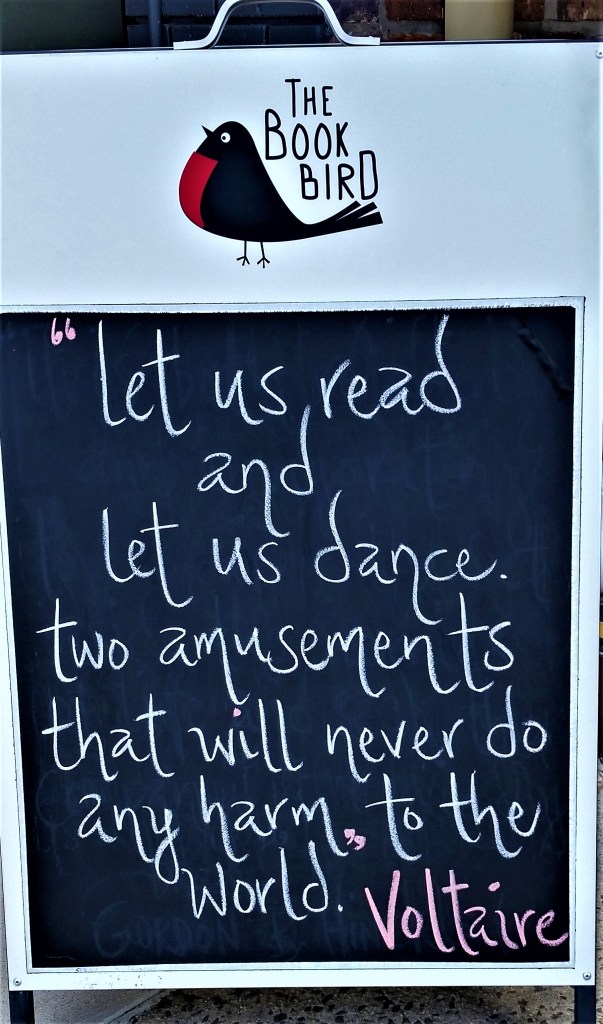 THE
BOOK
BIRD
“let us read
and
let us dance.
two amusements
that will never do
any harm” to the
world. Voltaire
GORDON